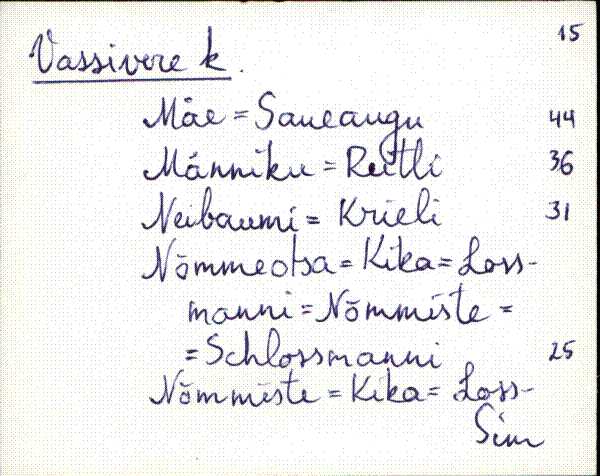 15
Vassivere k.
Mäe = Saueaugu 44
Männiku = Reitli 36
Neibaumi = Krieli 31
Nõmmeotsa = Kika = Loss-
manni = Nõmmiste =
= Schlossmanni 25
Nõmmiste = Kika = Loss-